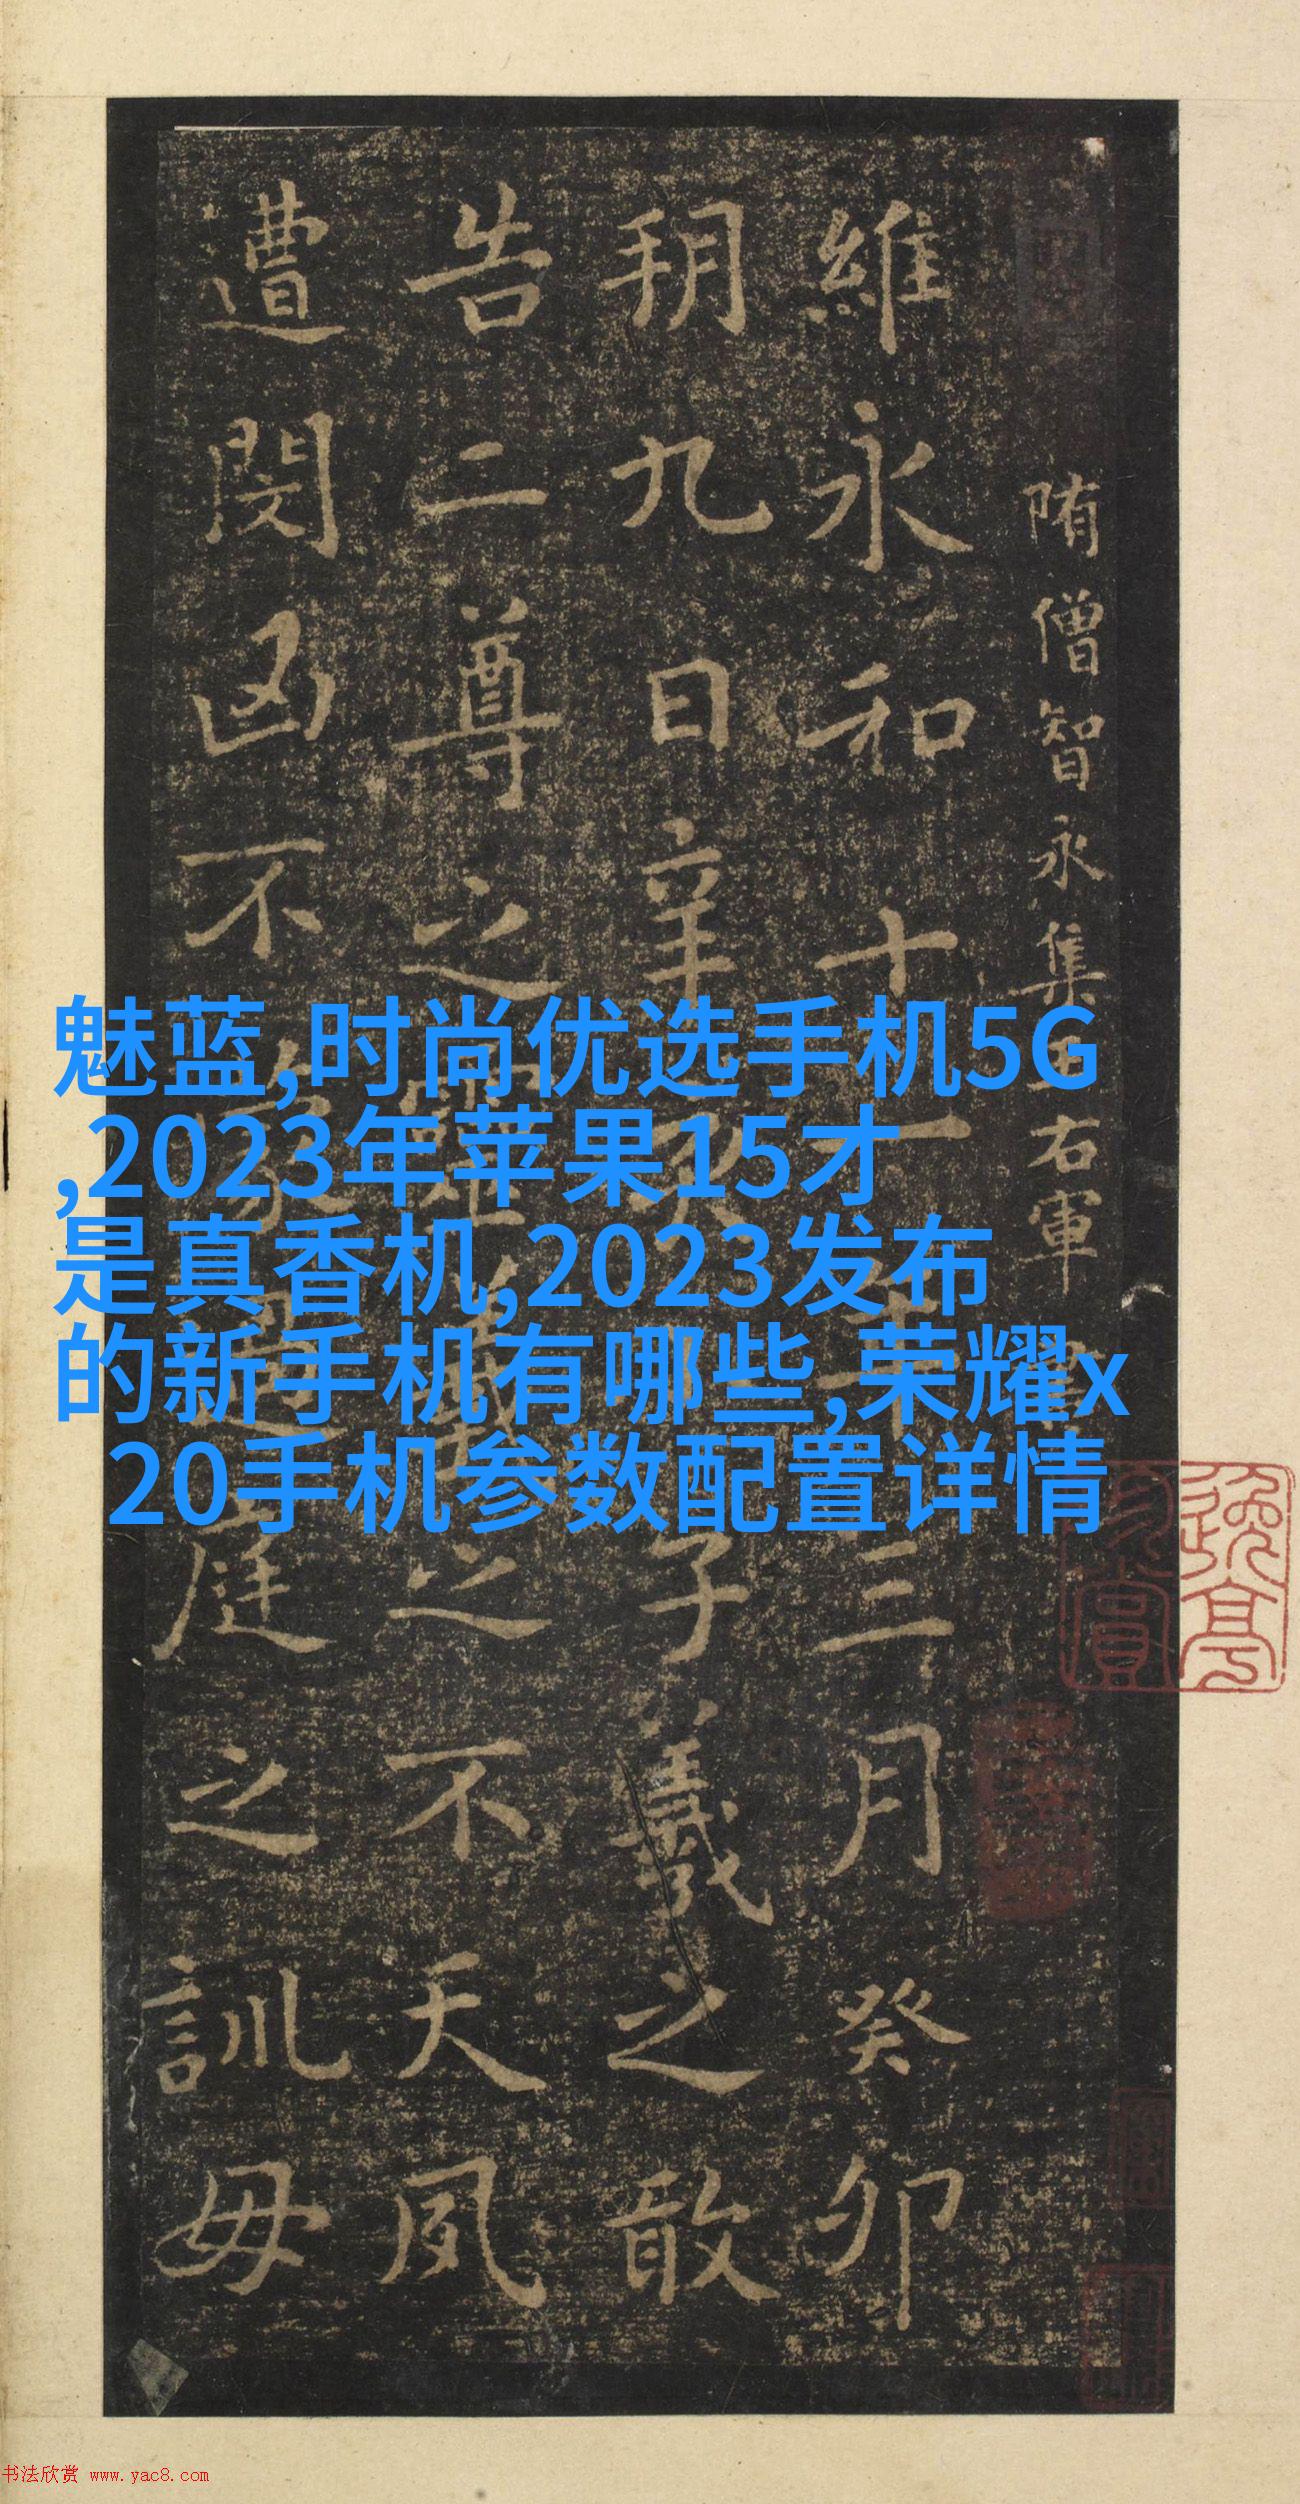 隋僧智永集王右軍
維永和十一年三月癸卯
朔九日辛亥小子羲之敢
告二尊之靈羲之不天夙
遭閔凶不蒙過庭之訓毋
魅蓝,时尚优选手机5G
,2023年苹果15才
是真香机,2023发布
的新手机有哪些,荣耀x
20手机参数配置详情
书法欣赏 www.yac8.com